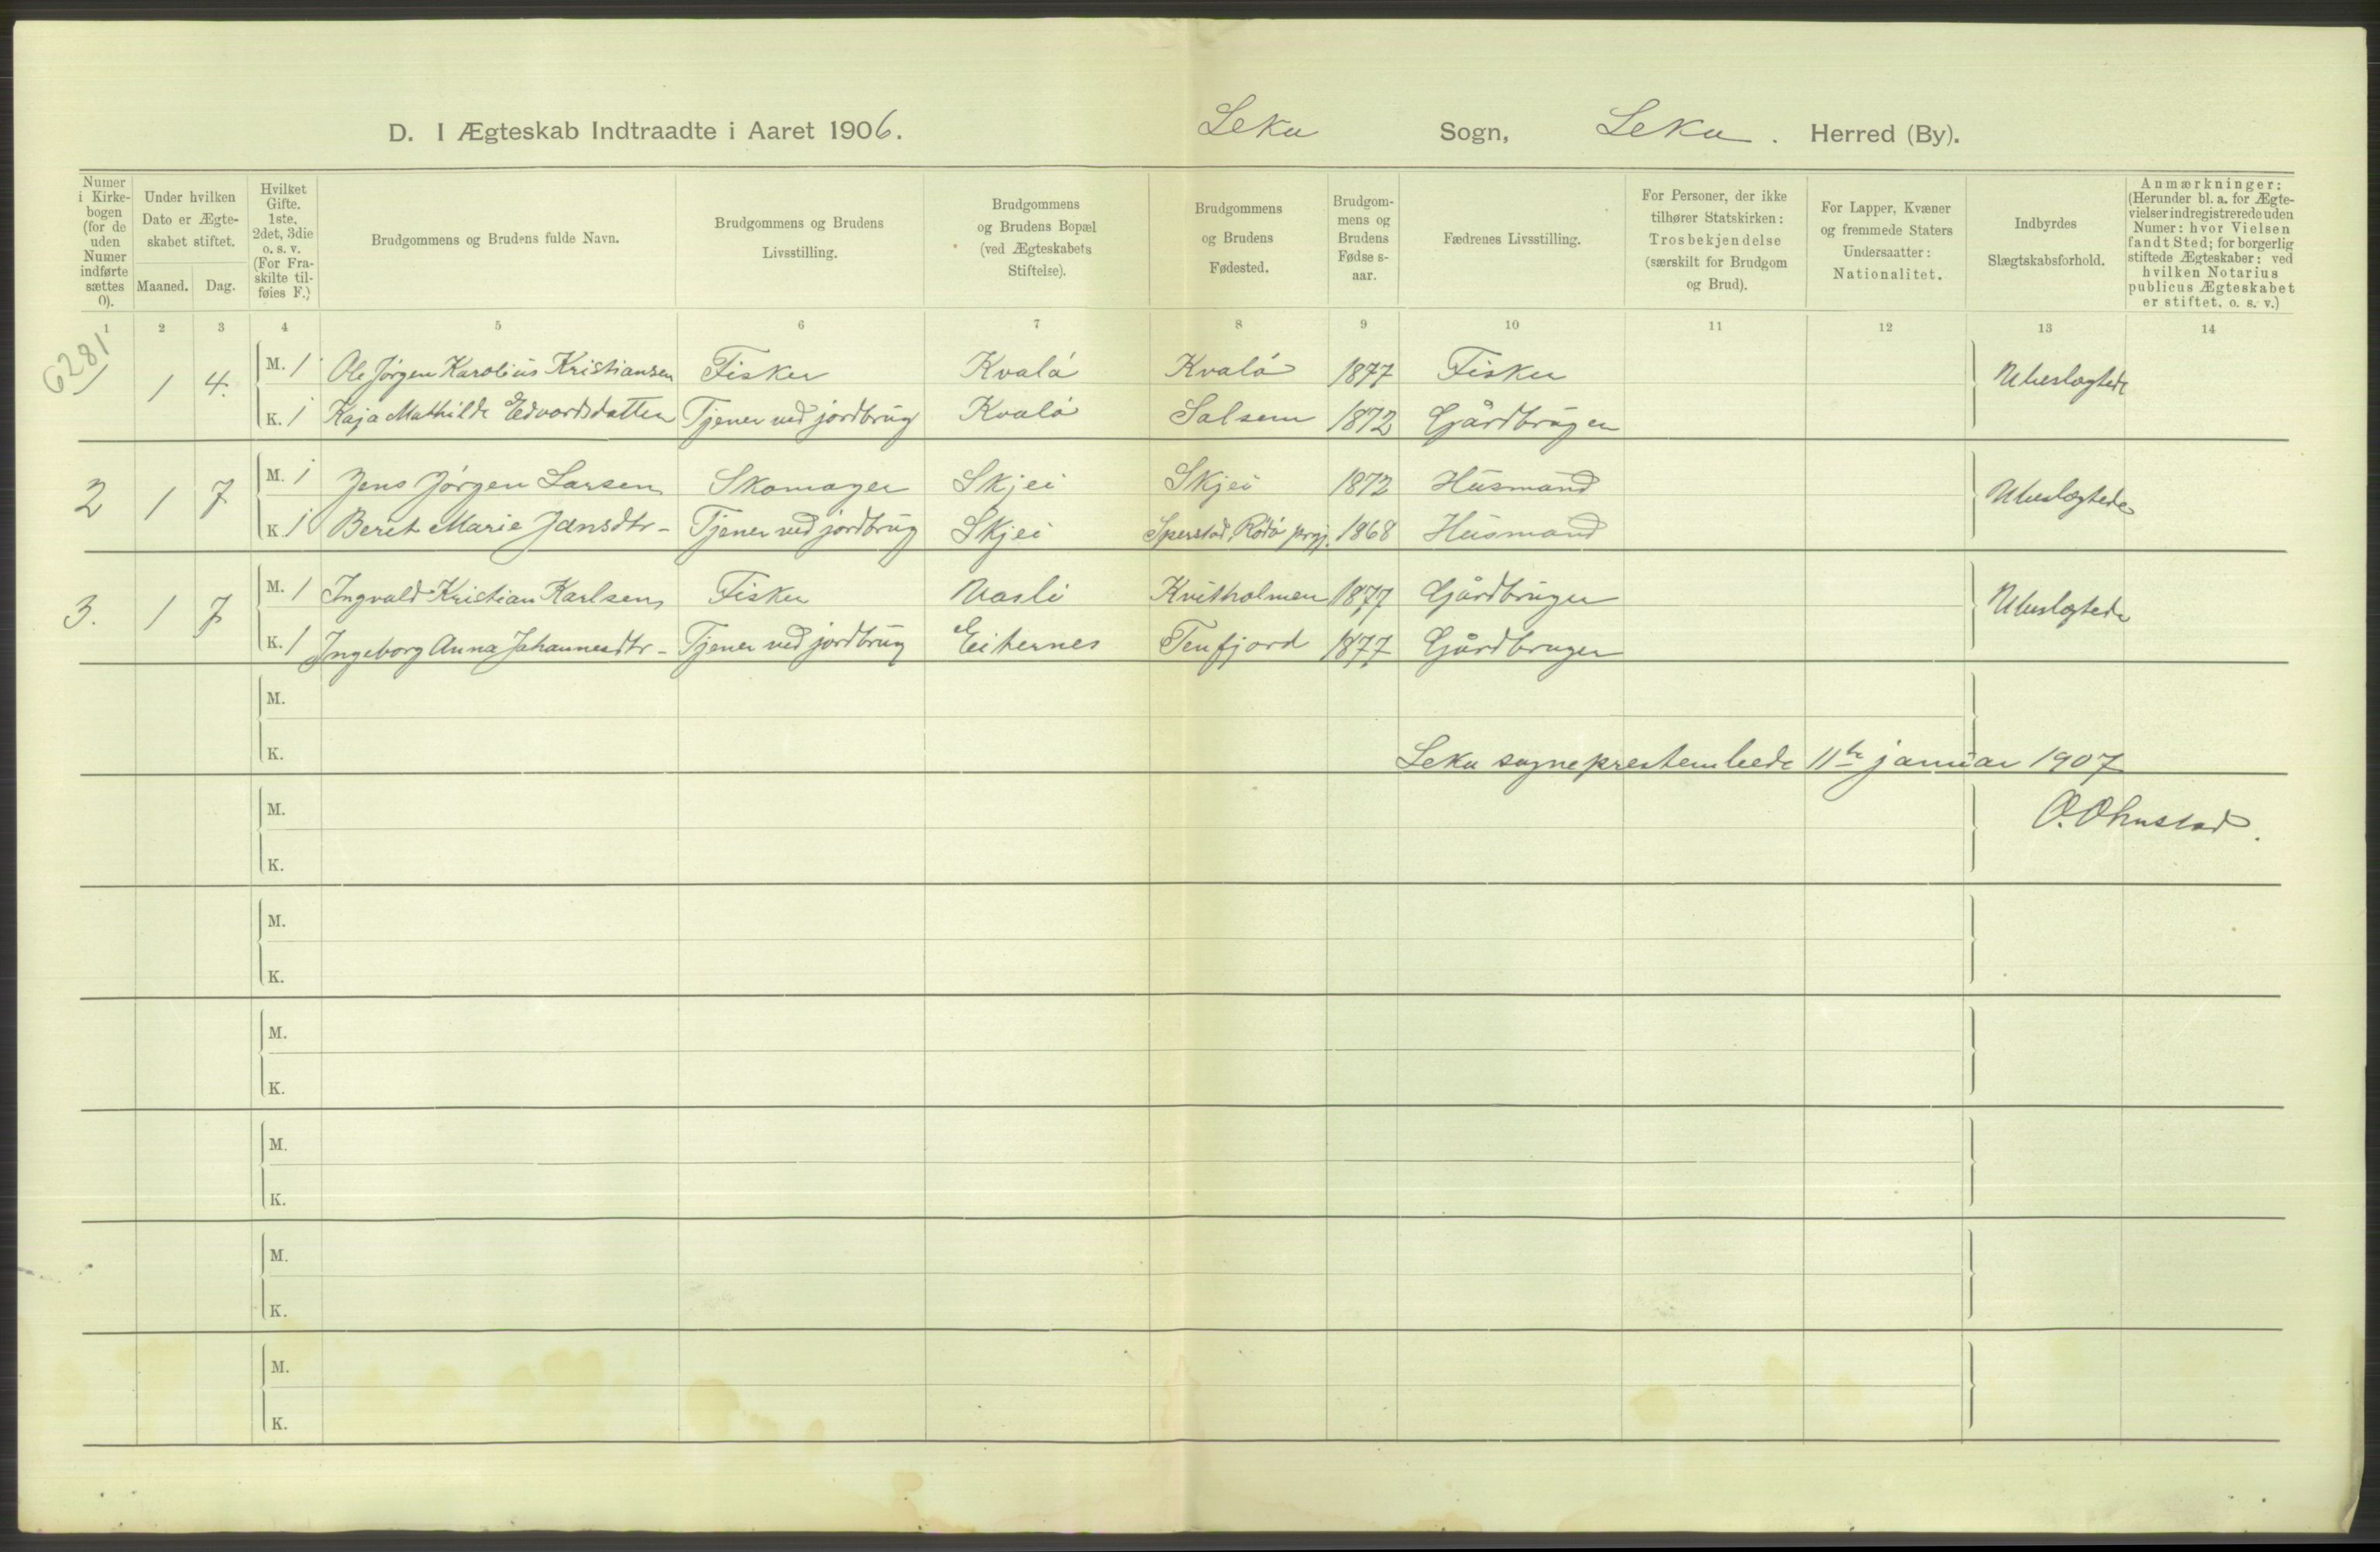 D. I Ægteskab Indtraadte i Aaret 1906. Leka Sogn, Leka. Herred (By).
Numer i Kirkebogen (for de uden Numer indførte sættes 0).
Under hvilken Dato er Ægteskabet stiftet.
Maaned. Dag.
Hvilket Gifte. 1ste, 2det, 3die o. s. v. (For Fraskilte tilføies F.)
Brudgommens og Brudens fulde Navn.
Brudgommens og Brudens Livsstilling.
Brudgommens og Brudens Bopæl (ved Ægteskabets Stiftelse).
Brudgommens og Brudens Fødested.
Brudgommens og Brudens Fødselsaar.
Fædrenes Livsstilling.
For Personer, der ikke tilhører Statskirken: Trosbekjendelse (særskilt for Brudgom og Brud).
For Lapper, Kvæner og fremmede Staters Undersaatter: Nationalitet.
Indbyrdes Slægtskabsforhold.
Anmærkninger: (Herunder bl. a. for Ægtevielser indregistrerede uden Numer: hvor Vielsen fandt Sted; for borgerlig stiftede Ægteskaber: ved hvilken Notarius publicus Ægteskabet er stiftet. o. s. v.)
1 2 3 4 5 6 7 8 9 10 11 12 13 14
6281
1 1 4. M. 1 Ole Jørgen Karolius Kristiansen Fisker Kvalø Kvalø 1877 Fisker Ubeslægtede
K. 1 Kaja Mathilde Edvardsdatter Tjener ved jordbrug Kvalø Salsem 1872 Gårdbruger
2 1 7 M. 1 Jens Jørgen Larsen Skomager Skjei Skjei 1872 Husmand Ubeslægtede
K. 1 Berit Marie Jansdtr- Tjener ved jordbrug Skjei Rödö prgj. 1868 Husmand
3. 1 7 M. 1 Ingvald Kristian Karlsen Fisker Aasli Kvitholmen 1877 Gårdbruger Ubeslægtede
K. 1 Ingeborg Anna Johannesdtr- Tjener ved jordbrug Eiternes Tenfjord 1877 Gårdbruger
M.
K. Leka sogneprestembede 11te januar 1907
M. O. Ohnstad.
K.
M.
K.
M.
K.
M.
K.
M.
K.
M.
K.